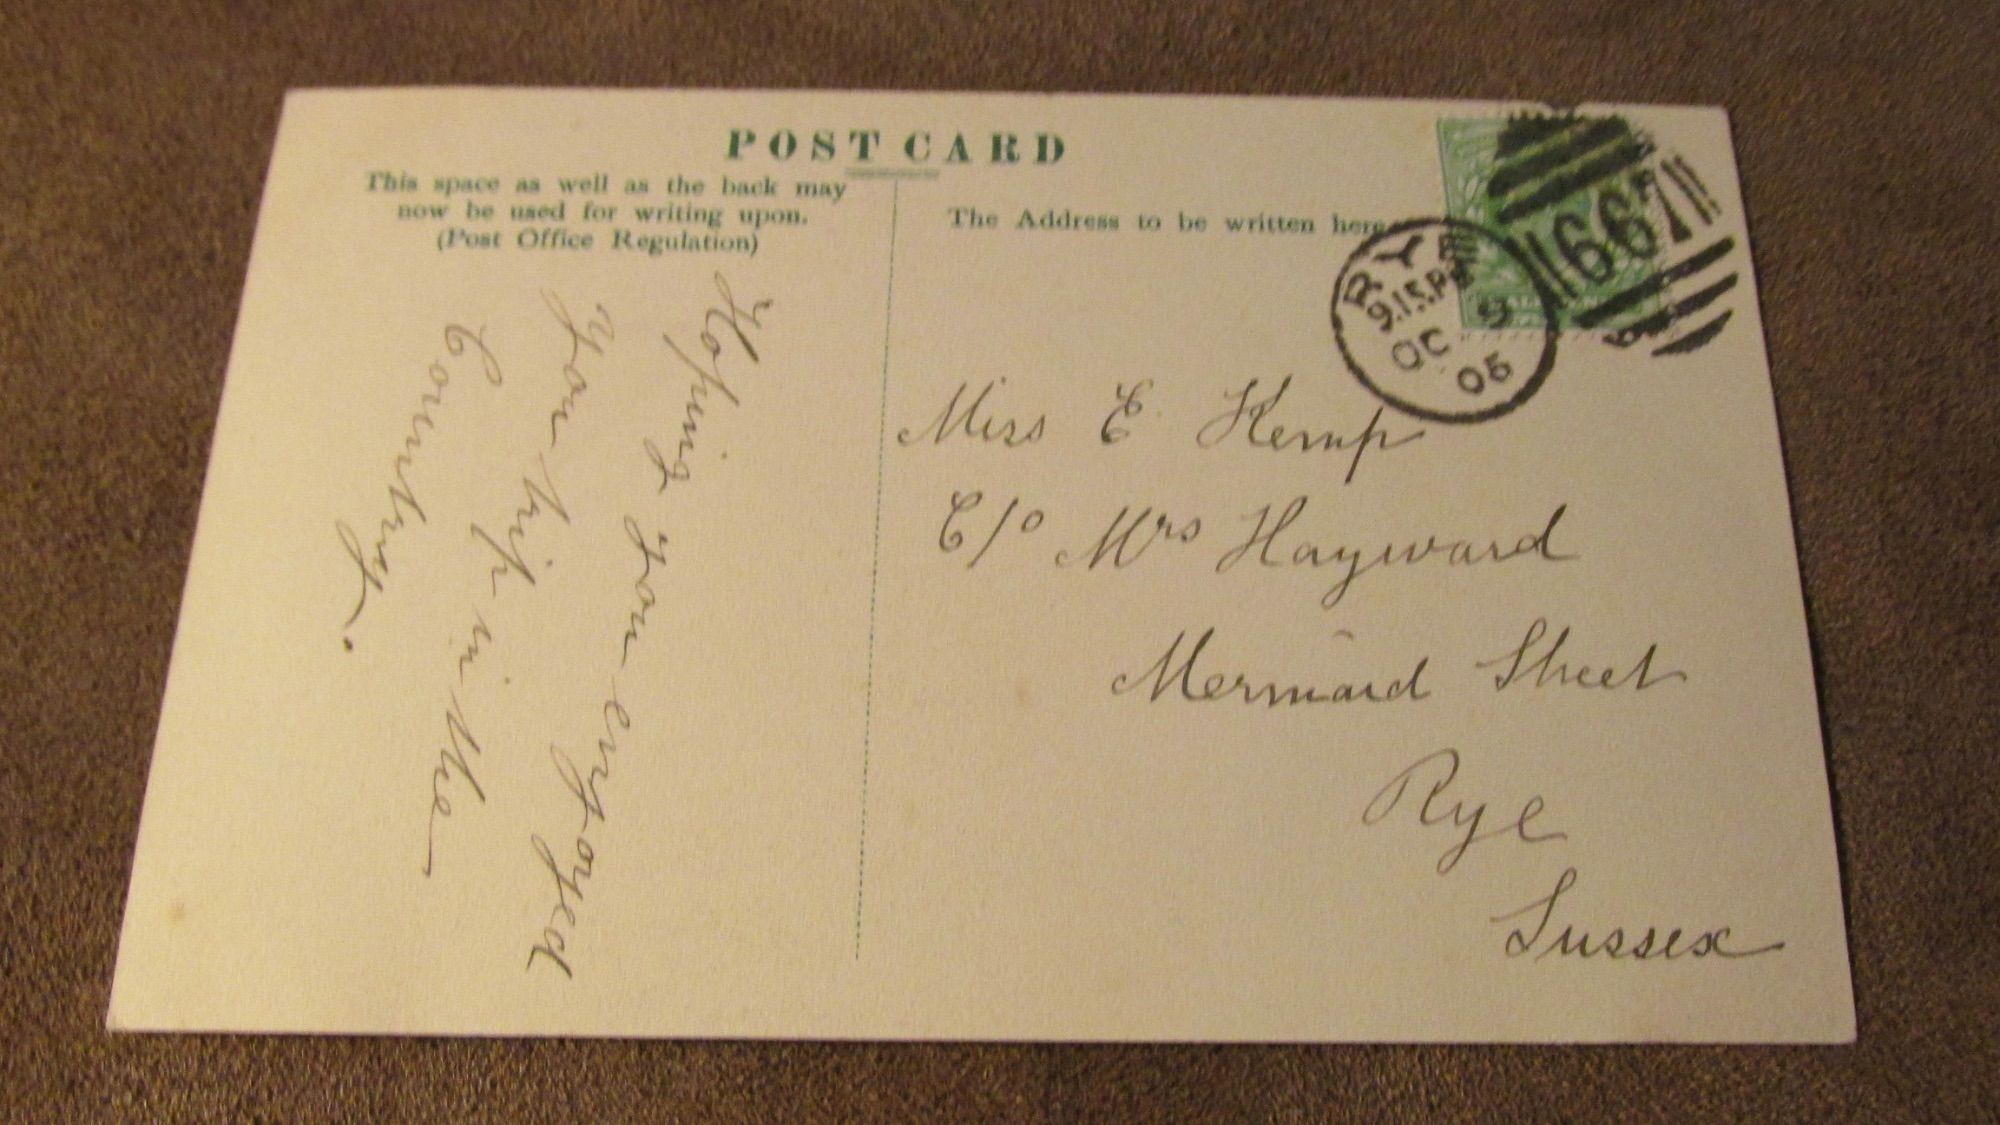 POST CARD
This space as well as the back may
now be used for writing upon.
(Post Office Regulation)
The Address to be written here
RYE
9.15 PM
OC 9
05
667
Hoping you enjoyed
your trip in the
Country.
Miss E Kemp
C/o Mrs Hayward
Mermaid Street
Rye
Sussex